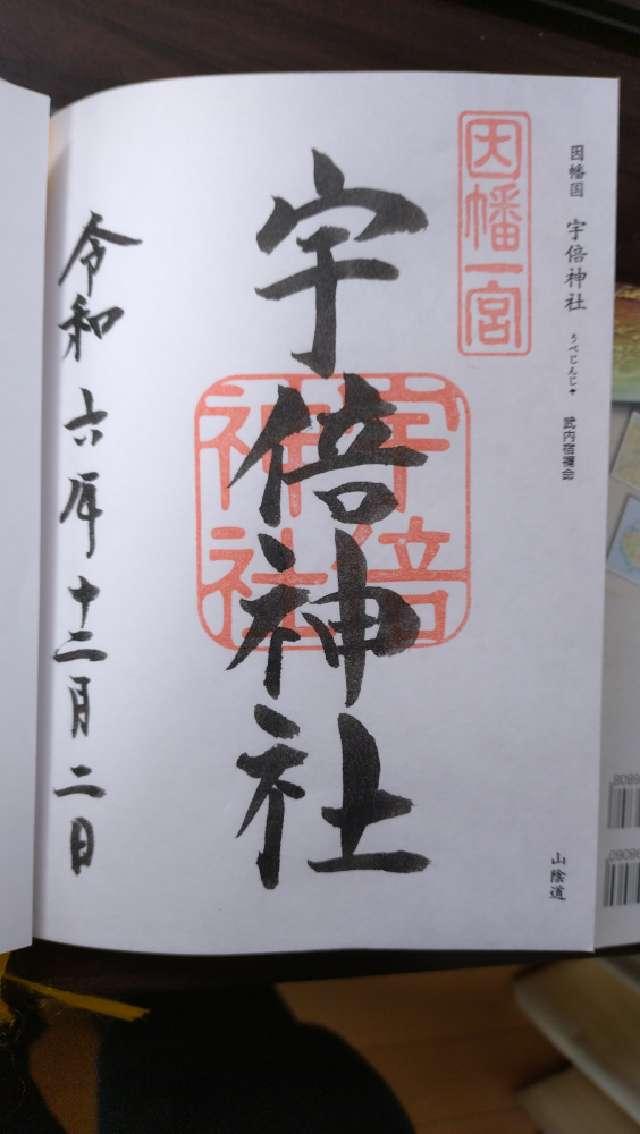 因幡国 宇倍神社 うべじんじゃ 武内宿禰命
山陰道
因幡一宮
宇倍神社
宇倍神社
令和六年十二月二日